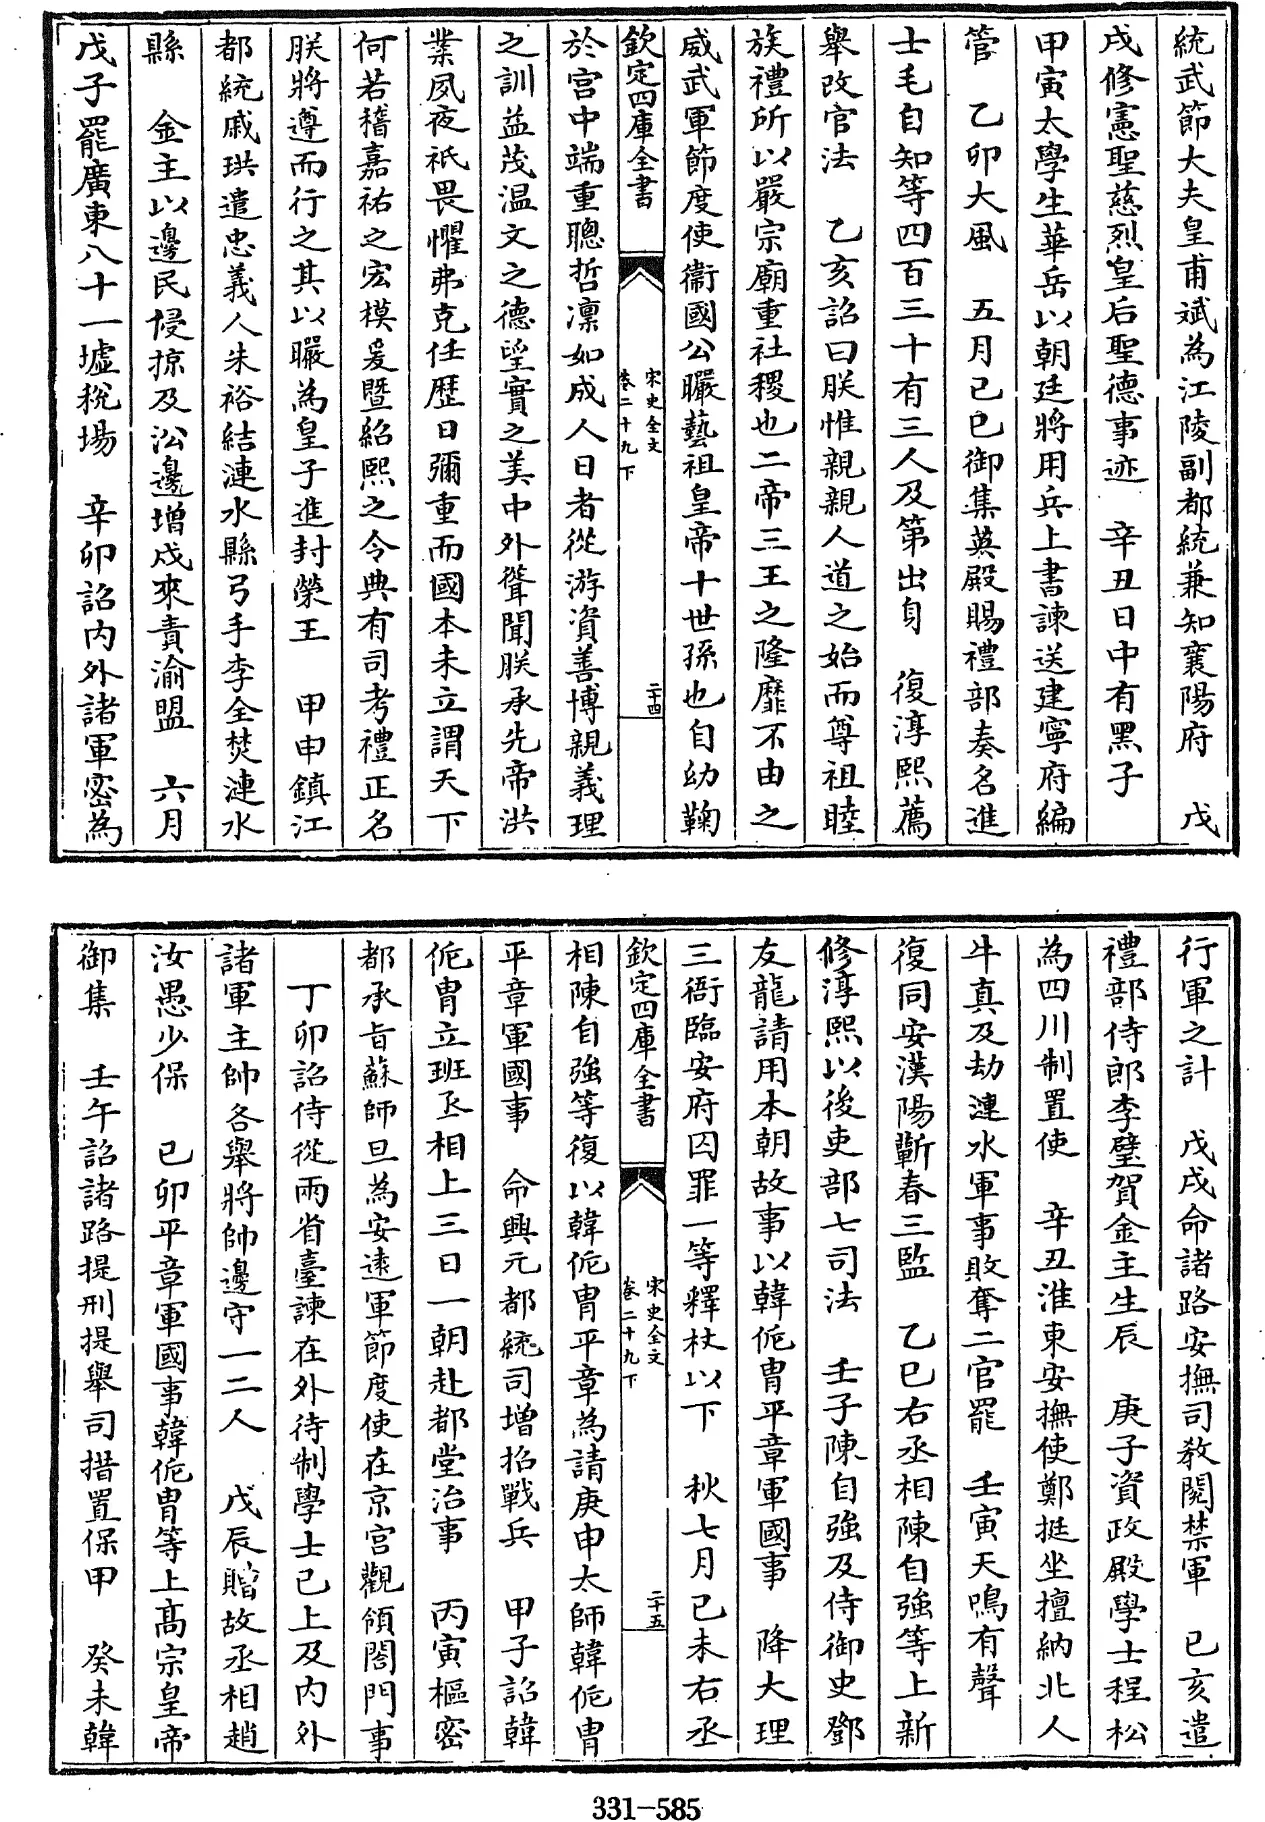 統武節大夫皇甫斌為江陵副都統兼知襄陽府　戊
戌修憲聖慈烈皇后聖德事迹　辛丑日中有黑子
甲寅太學生華岳以朝廷將用兵上書諫送建寧府編
管　乙卯大風　五月己巳御集英殿賜禮部奏名進
士毛自知等四百三十有三人及第出身　復淳熙薦
舉改官法　乙亥詔曰朕惟親親人道之始而尊祖睦
族禮所以嚴宗廟重社稷也二帝三王之隆靡不由之
威武軍節度使衞國公㬎藝祖皇帝十世孫也自幼鞠
欽定四庫全書
宋史全文
卷二十九下
二十四
於宫中端重聰哲凛如成人日者從游資善博親義理
之訓益茂温文之德望實之美中外聳聞朕承先帝洪
業夙夜祇畏懼弗克任歷日彌重而國本未立謂天下
何若稽嘉祐之宏模爰暨紹熙之令典有司考禮正名
朕將遵而行之其以㬎為皇子進封榮王　甲申鎮江
都統戚珙遣忠義人朱裕結漣水縣弓手李全焚漣水
縣　金主以邊民侵掠及汃邊增戍來責渝盟　六月
戊子罷廣東八十一墟稅場　辛卯詔内外諸軍密為
行軍之計　戊戌命諸路安撫司教閱禁軍　己亥遣
禮部侍郎李璧賀金主生辰　庚子資政殿學士程松
為四川制置使　辛丑淮東安撫使鄭挺坐擅納北人
牛真及劫漣水軍事敗奪二官罷　壬寅天鳴有聲
復同安漢陽蘄春三監　乙巳右丞相陳自強等上新
修淳熙以後吏部七司法　壬子陳自強及侍御史鄧
友龍請用本朝故事以韓侂胄平章軍國事　降大理
三衙臨安府囚罪一等釋杖以下　秋七月己未右丞
欽定四庫全書
宋史全文
卷二十九下
二十五
相陳自強等復以韓侂胄平章為請庚申太師韓侂胄
平章軍國事　命興元都統司增招戰兵　甲子詔韓
侂胄立班丞相上三日一朝赴都堂治事　丙寅樞密
都承旨蘇師旦為安逺軍節度使在京宮觀領閤門事
丁卯詔侍從兩省臺諫在外待制學士已上及内外
諸軍主帥各舉將帥邊守一二人　戊辰贈故丞相趙
汝愚少保　己卯平章軍國事韓侂胄等上高宗皇帝
御集　壬午詔諸路提刑提舉司措置保甲　癸未韓
331-585